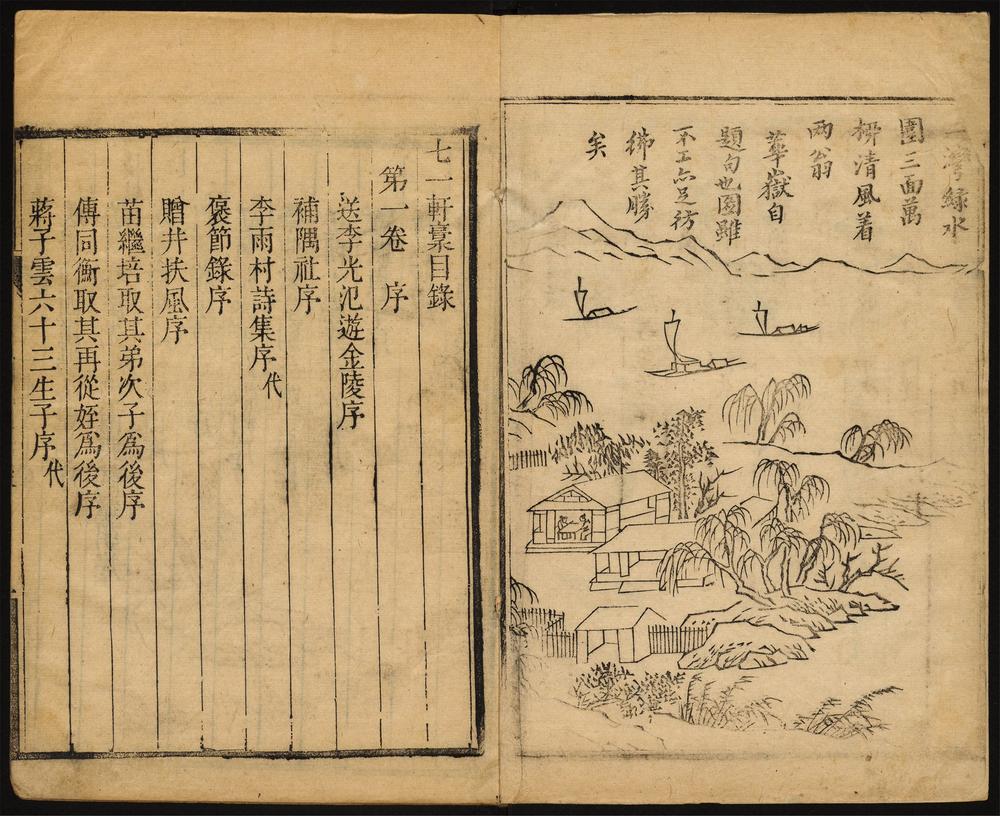 一灣綠水
圍三面萬
柳清風着
两翁
華嶽自
題句也圖雖
不工亦足彷
彿其勝
矣
七一軒藁目錄
第一卷 序
送李光氾遊金陵序
補隅社序
李雨村詩集序代
褒節錄序
贈井扶風序
苗繼培取其弟次子爲後序
傳同衡取其再從姪爲後序
蔣子雲六十三生子序代